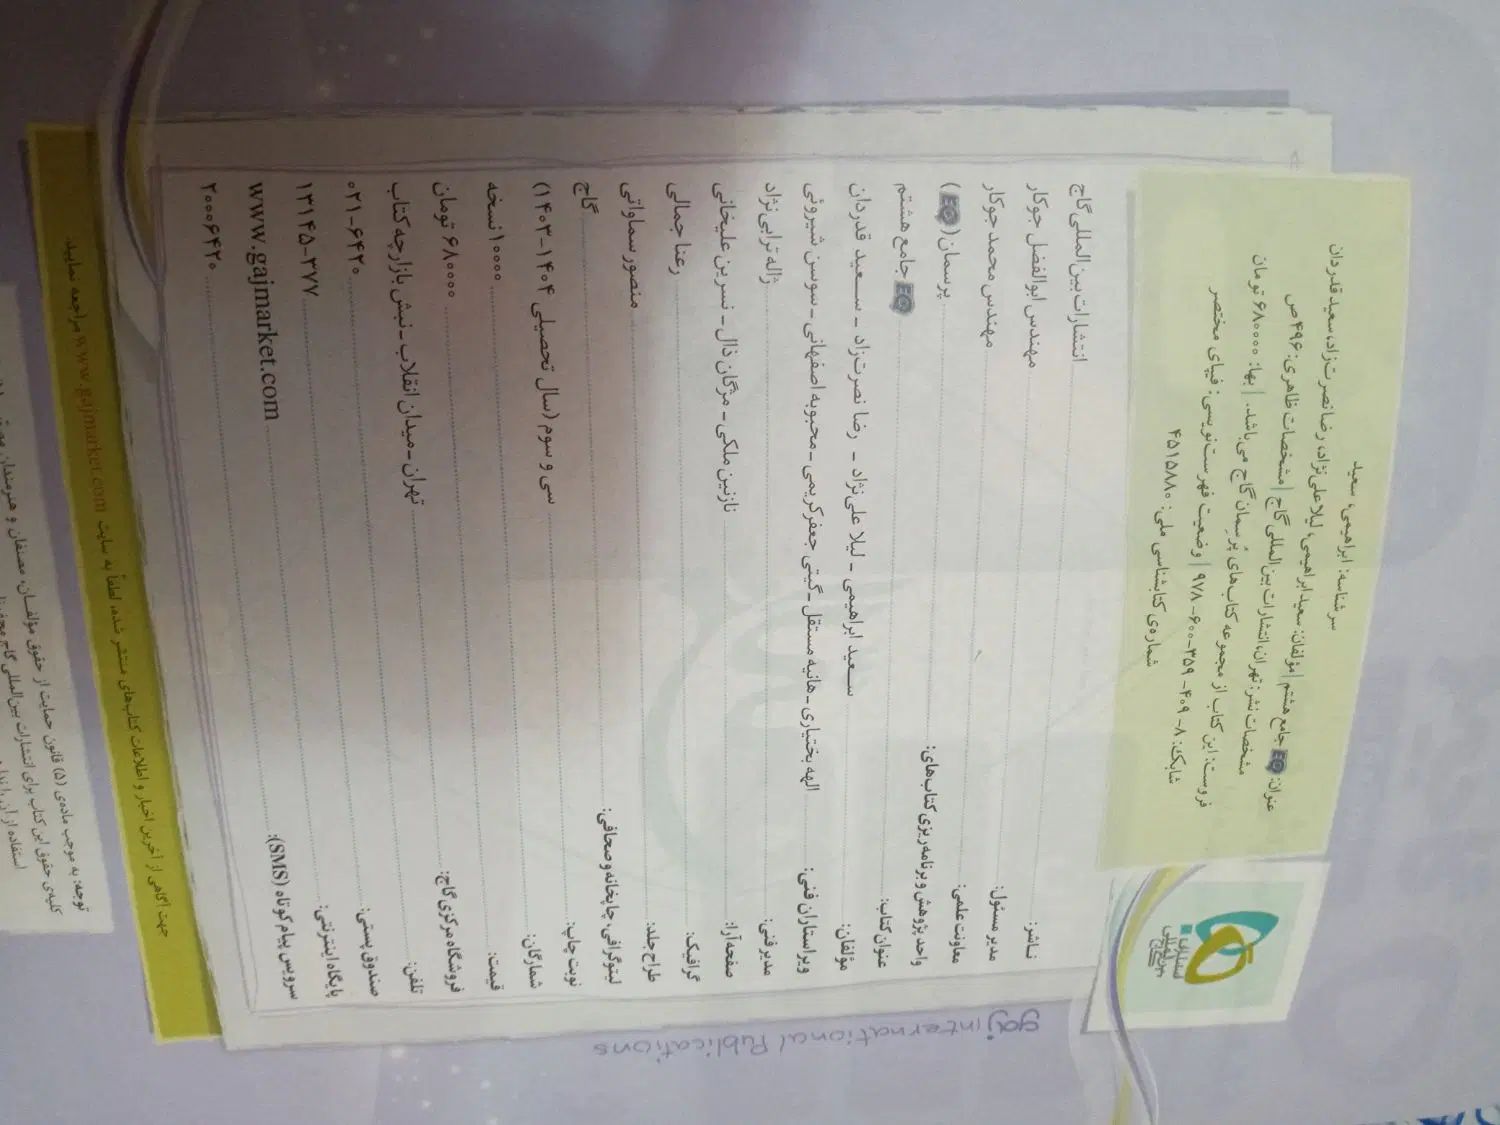 سرشناسه: ابراهیمی، سعید
عنوان: EQ جامع هشتم | مؤلفان: سعید ابراهیمی، لیلا علی‌نژاد، رضا نصرت‌زاد، سعید قدردان
مشخصات نشر: تهران، انتشارات بین‌المللی گاج | مشخصات ظاهری: ۴۹۶ ص
فروست: این کتاب از مجموعه کتاب‌های پُرسِمان گاج می‌باشد. | بها: ۶۸۰۰۰۰ تومان
شابک: ۸-۴۰۹-۳۵۹-۶۰۰-۹۷۸ | وضعیت فهرست‌نویسی: فیپای مختصر
شماره‌ی کتابشناسی ملی: ۴۵۱۵۸۸۰
انتشارات بین‌المللی گاج
gaj international Publications
ناشر: انتشارات بین‌المللی گاج
مدیر مسئول: مهندس ابوالفضل جوکار
معاونت علمی: مهندس محمد جوکار
واحد پژوهش و برنامه‌ریزی کتاب‌های: پرسمان (EQ)
عنوان کتاب: EQ جامع هشتم
مؤلفان: سعید ابراهیمی - لیلا علی‌نژاد - رضا نصرت‌زاد - سعید قدردان
ویراستاران فنی: الهه بختیاری - هانیه مستقل - گیتی جعفرکریمی - محبوبه اصفهانی - سوسن شیروئی
مدیر فنی: ژاله ترابی‌نژاد
صفحه‌آرا: نازنین ملکی - مژگان دال - نسرین علیخانی
گرافیک: رعنا جمالی
طراح جلد: منصور سماواتی
لیتوگرافی، چاپخانه و صحافی: گاج
نوبت چاپ: سی و سوم (سال تحصیلی ۱۴۰۴-۱۴۰۳)
شمارگان: ۱۰۰۰۰ نسخه
قیمت: ۶۸۰۰۰۰ تومان
فروشگاه مرکزی گاج: تهران - میدان انقلاب - نبش بازارچه کتاب
تلفن: ۰۲۱-۶۴۲۰
صندوق پستی: ۱۳۱۴۵-۳۷۷
پایگاه اینترنتی: www.gajmarket.com
سرویس پیام کوتاه (SMS): ۲۰۰۰۶۴۲۰
جهت آگاهی از آخرین اخبار و اطلاعات کتاب‌های منتشر شده، لطفاً به سایت www.gajmarket.com مراجعه نمایید.
توجه: به موجب ماده‌ی (۵) قانون حمایت از حقوق مؤلفان، مصنفان و هنرمندان
کلیه‌ی حقوق این کتاب برای انتشارات بین‌المللی گاج
استفاده از آن را ندارد